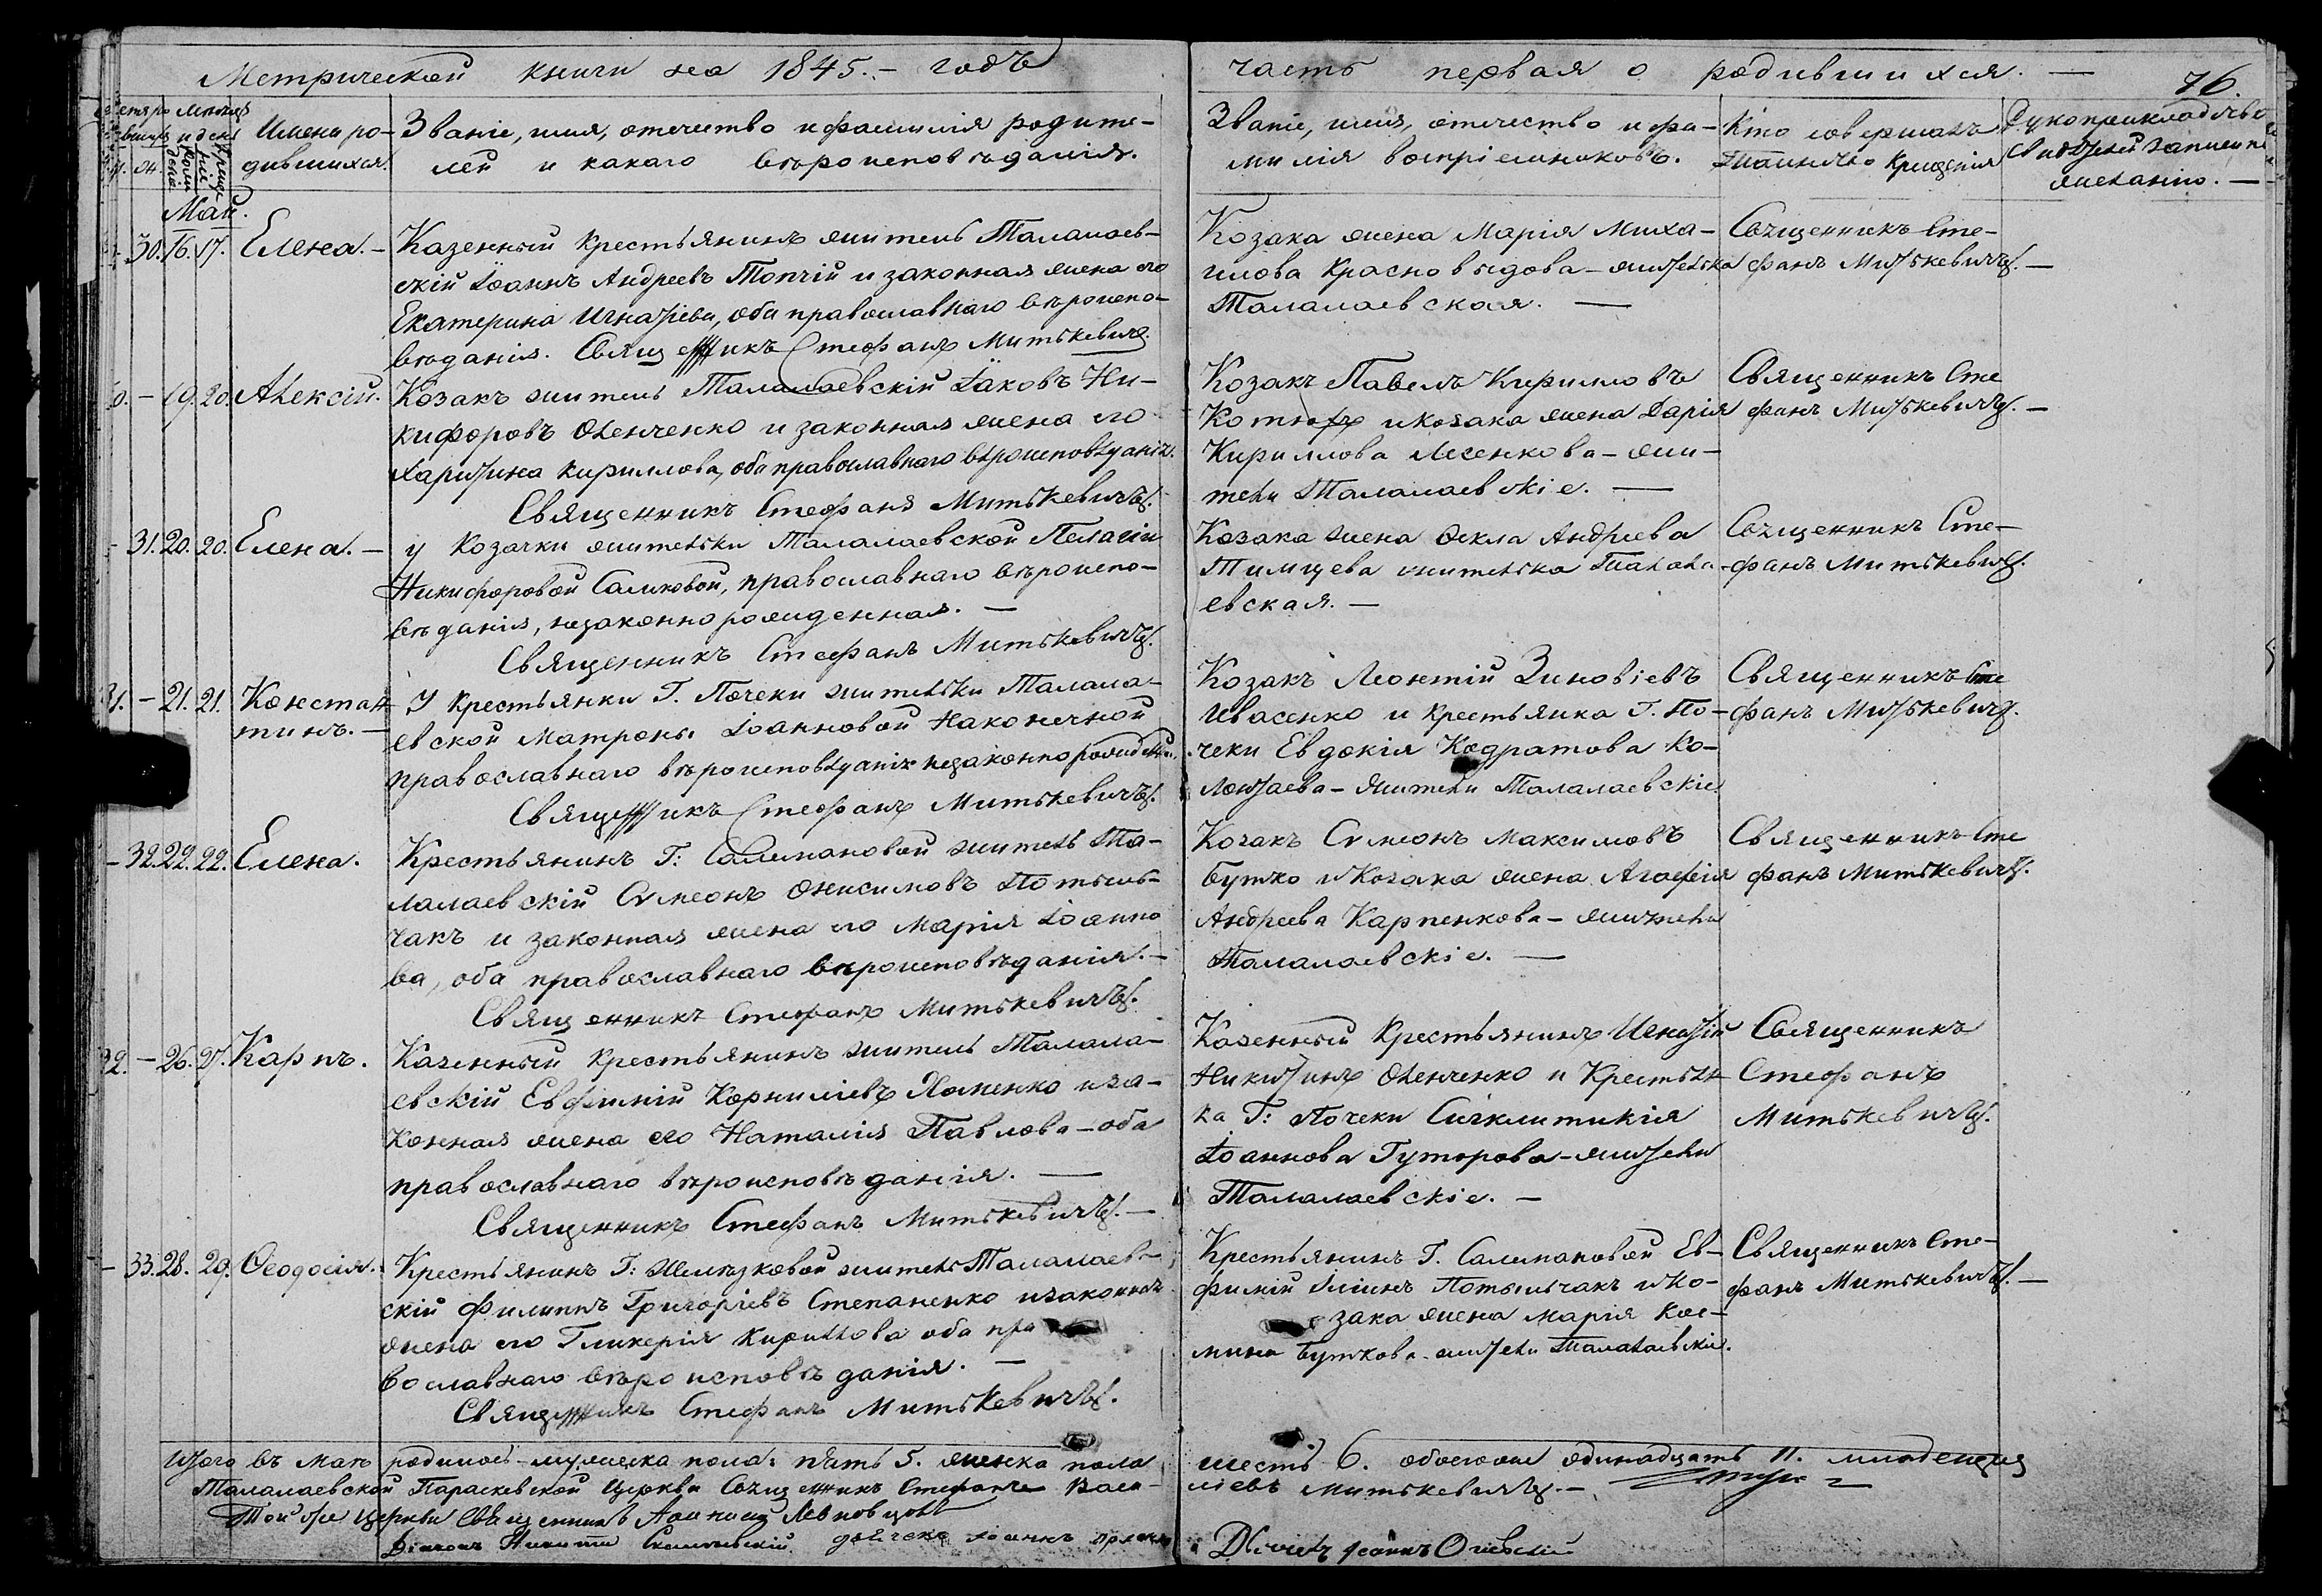 Метрической книги на 1845.- годъ часть первая о родившихся. —
76.
Имена ро-
дившихся.
Званіе, имя, отечество и фамилія родите-
лей и какаго вѣроисповѣданія.
Званіе, имя, отечество и фа-
милія воспріемниковъ.
Кто совершалъ
таинство крещенія
Рукоприкладство
свидѣтелей записи по
желанію. —
Май.
30. 16. 17. Елена. —
Казенный крестьянинъ житель Талалаев-
скій Іоаннъ Андреевъ Топчій и законная жена его
Екатерина Игнатіева, оба православнаго вѣроиспо-
вѣданія. Священникъ Стефанъ Митькевичъ.
Козака жена Марія Миха-
илова Красновыдова - жителька
Талалаевская. —
Священникъ Сте-
фанъ Митькевичъ. —
30. — 19. 20. Алексій.
Козакъ житель Талалаевскій Іаковъ Ни-
кифоровъ Оленченко и законная жена его
Харитина Кириллова, оба православнаго вѣроисповѣданія.
Священникъ Стефанъ Митькевичъ.
Козакъ Павелъ Кирилловъ
и козака жена Дарія
Кириллова - жи-
тели Талалаевскіе. —
Священникъ Сте
фанъ Митькевичъ. —
— 31. 20. 20. Елена. —
у Козачки жительки Талалаевской Пелагіи
Никифоровой Саликовой, православнаго вѣроиспо-
вѣданія, незаконнорожденная. —
Священникъ Стефанъ Митькевичъ.
Козака жена Ѳекла Андреева
Тимцева жителька Талала-
евская. —
Священникъ Сте-
фанъ Митькевичъ.
31. — 21. 21. Констан
тинъ. —
У крестьянки Г. Почеки жительки Талала-
евской Матроны Іоанновой Наконечной
православнаго вѣроисповѣданія незаконнорожденный.
Священникъ Стефанъ Митькевичъ.
Козакъ Леонтій Зиновіевъ
Ивасенко и крестьянка Г. По-
чеки Евдокія Кодратова Ко-
лонтаева - жители Талалаевскіе.
Священникъ Сте
фанъ Митькевичъ.
— 32. 22. 22. Елена.
Крестьянинъ Г: Салимановой житель Та-
лалаевскій Сѵмеонъ Онисимовъ Потыль-
чакъ и законная жена его Марія Іоанно
ва, оба православнаго вѣроисповѣданія. —
Священникъ Стефанъ Митькевичъ.
Козакъ Сѵмеонъ Максимовъ
Бутко и козака жена Агафія
Андреева Карпенкова - жители
Талалаевскіе. —
Священникъ Сте
фанъ Митькевичъ.
32. — 26. 27. Карпъ.
Казенный крестьянинъ житель Талала-
евскій Евфимій Корниліевъ Хоменко и за-
конная жена его Наталія Павлова - оба
православнаго вѣроисповѣданія. —
Священникъ Стефанъ Митькевичъ. —
Казенный крестьянинъ Игнатій
Никитинъ Оленченко и крестьян
ка Г: Почеки Сигклитикія
Іоаннова Гуторова - жители
Талалаевскіе. —
Священникъ
Стефанъ
Митькевичъ.
— 33. 28. 29. Ѳеодосія.
Крестьянинъ Г: Шемызковой житель Талалаев-
скій Филиппъ Григоріевъ Степаненко и законная
жена его Гликерія Кириллова оба пра
вославнаго вѣроисповѣданія. —
Священникъ Стефанъ Митькевичъ.
Крестьянинъ Г. Салимановой Ев-
фимій Іліинъ Потыльчакъ и ко-
зака жена Марія Кос-
мина Буткова - жители Талалаевскіе.
Священникъ Сте-
фанъ Митькевичъ. —
Итого въ маѣ родилось - мужеска пола: пять 5. женска пола шесть 6. обоегоже одинадцать 11. младенцевъ
Талалаевской Параскевской Церкви Священникъ Стефанъ Васи- ліевъ Митькевичъ. —
Той же церкви Священникъ Леоновцовъ
Діаконъ Никита дьячекъ Іоаннъ
Іоаннъ